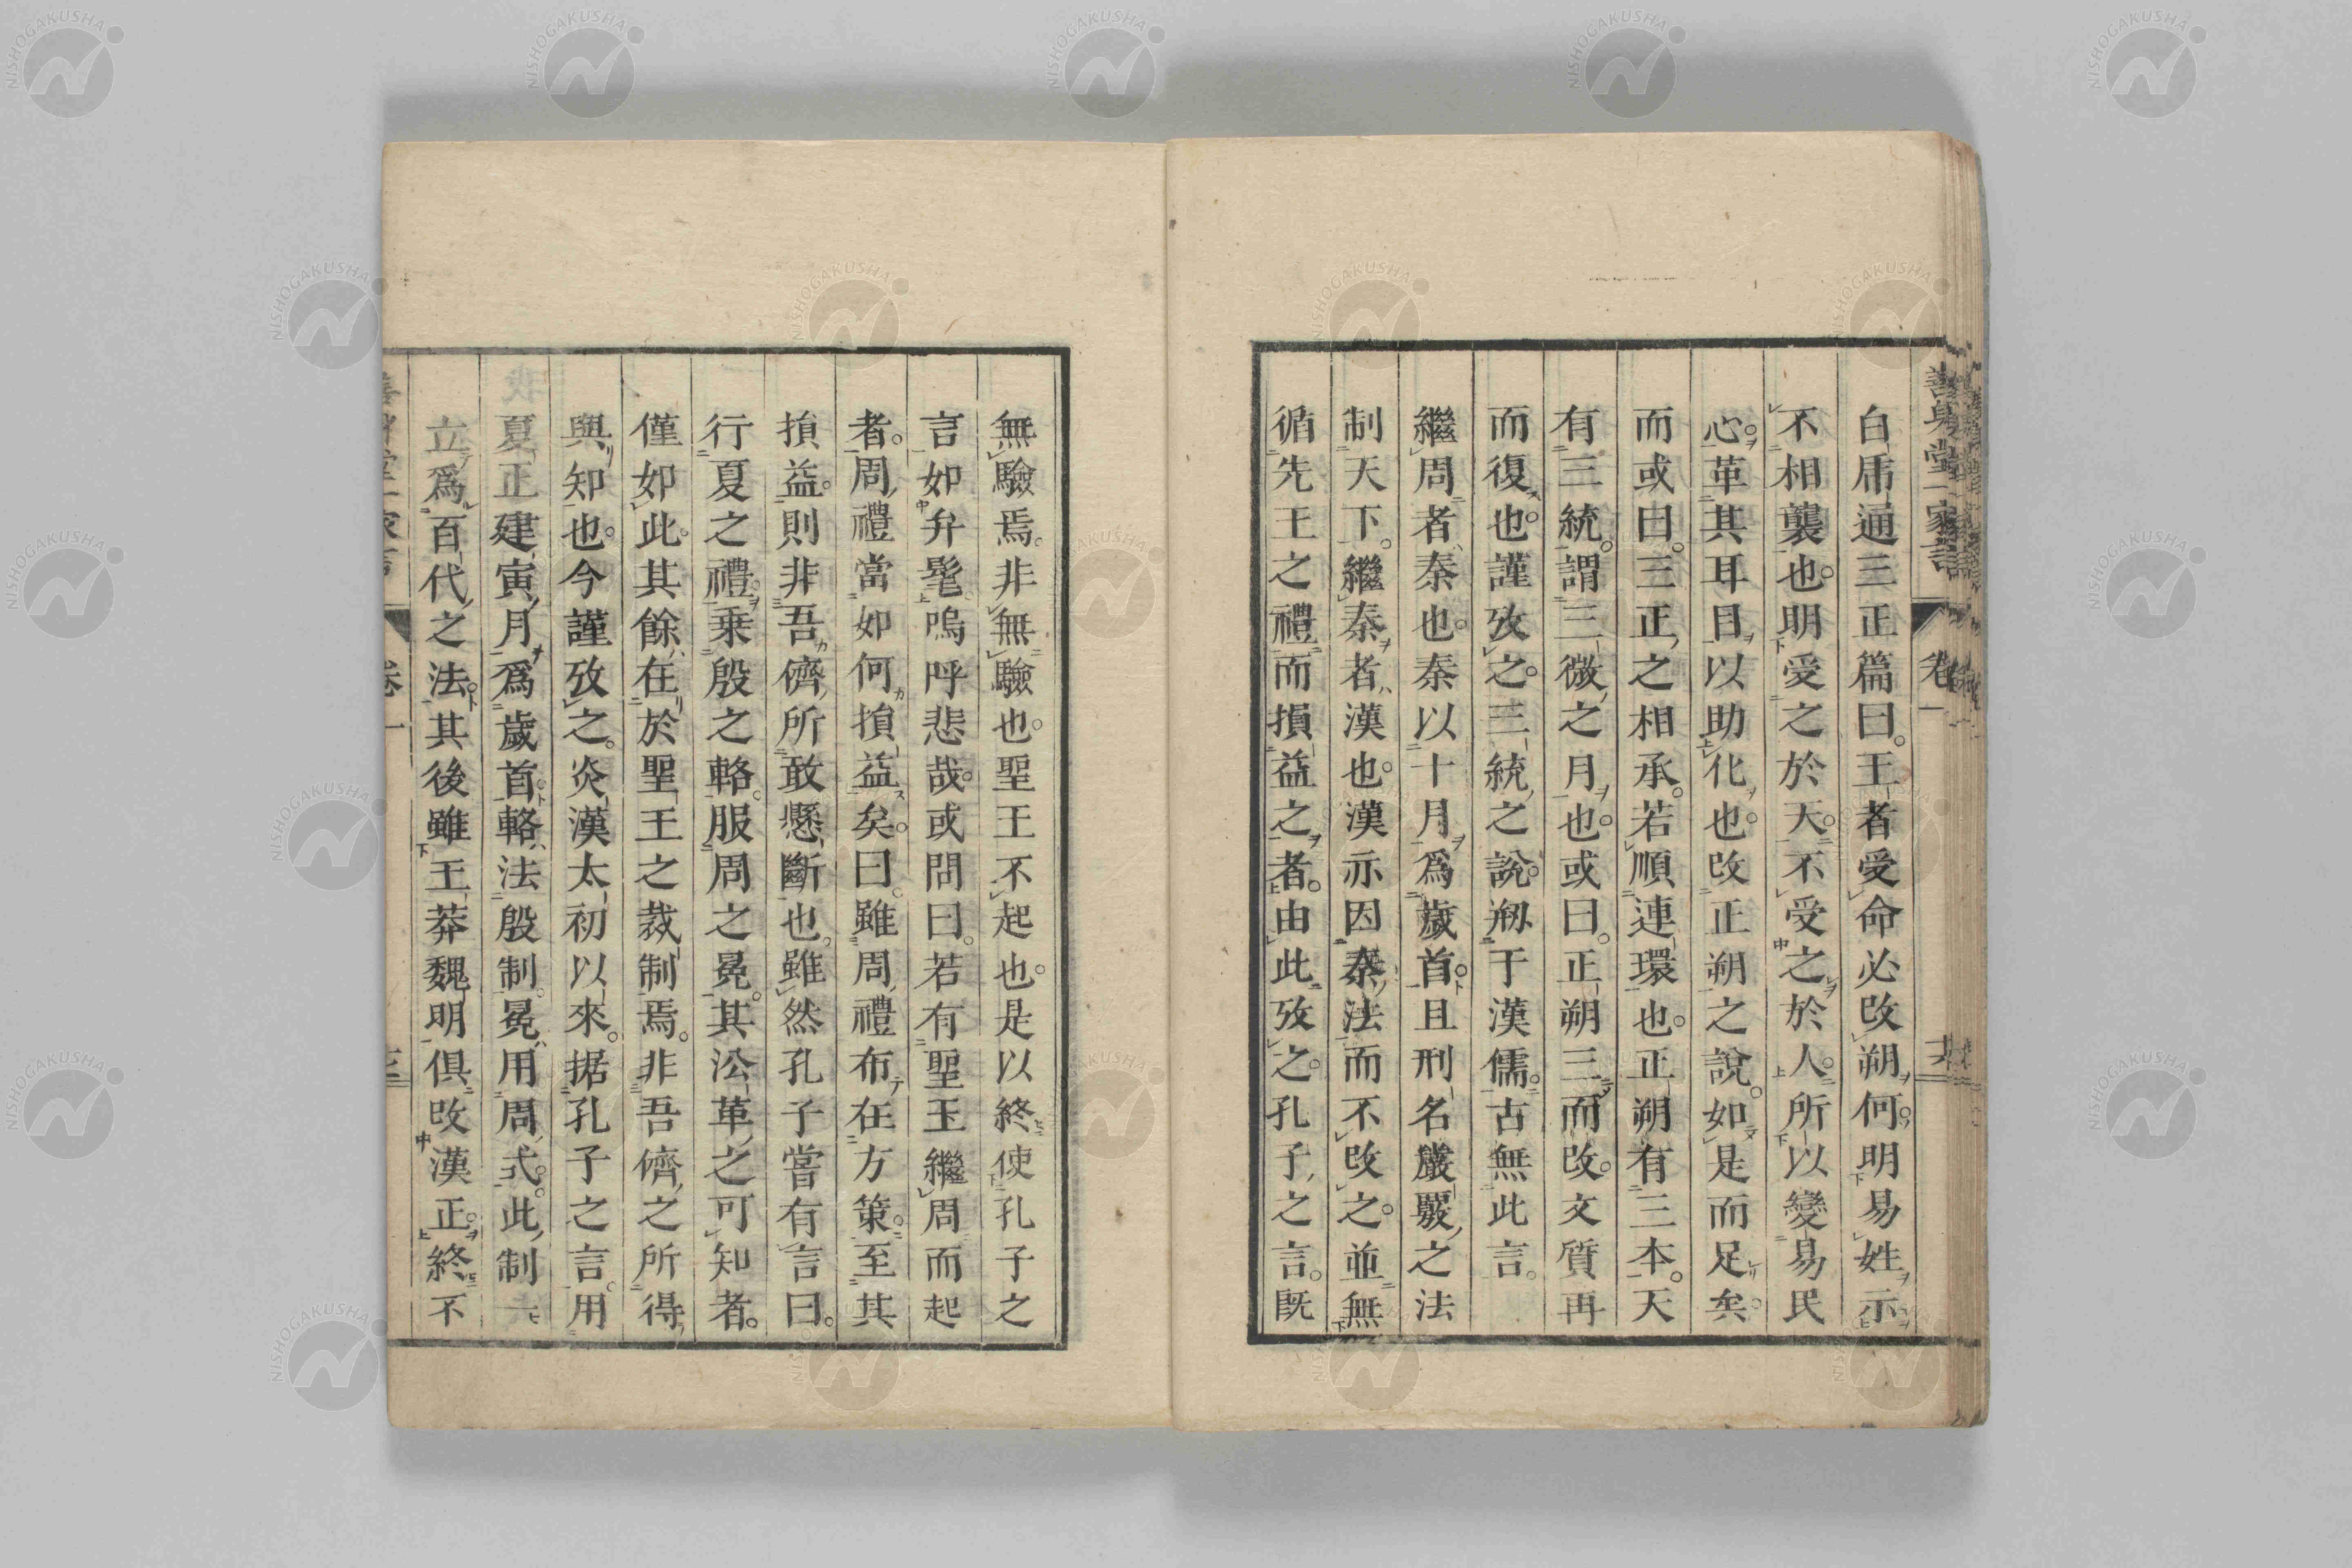 白虎通三正篇曰。王者受命必改朔何。明易姓示
不相襲也。明受之於天。不受之於人。所以變易民
心。革其耳目。以助化也。改正朔之說。如是而足矣。
而或曰。三正之相承。若順連環也。正朔有三本。天
有三統。謂三微之月也。或曰。正朔三而改。文質再
而復也。謹攷之。三統之說。剏于漢儒。古無此言。
繼周者秦也。秦以十月爲歲首。且刑名嚴覈之法
制天下。繼秦者漢也。漢亦因秦法而不改之。並無
循先王之禮而損益之者。由此攷之。孔子之言。既
無驗焉。非無驗也。聖王不起也。是以終使孔子之
言如弁髦。嗚呼悲哉。或問曰。若有聖王繼周而起
者。周禮當如何損益矣。曰。雖周禮布在方策。至其
損益。則非吾儕所敢懸斷也。雖然孔子嘗有言曰。
行夏之禮。乘殷之輅。服周之冕。其沿革之可知者。
僅如此。其餘在於聖王之裁制焉。非吾儕之所得
與知也。今謹攷之。炎漢太初以來。据孔子之言。用
夏正建寅月爲歲首。輅法殷制。冕用周式。此制一
立爲百代之法。其後雖王莽魏明俱改漢正。終不
卷一